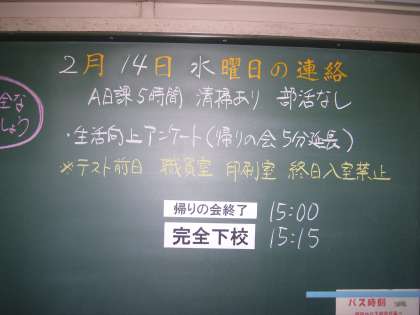 2月14日 水曜日の連絡
A日課5時間 清掃あり 部活なし
・生活向上アンケート(帰りの会5分延長)
※テスト前日 職員室 印刷室 終日入室禁止
帰りの会終了 15:00
完全下校 15:15
全な
しょう
バス時刻